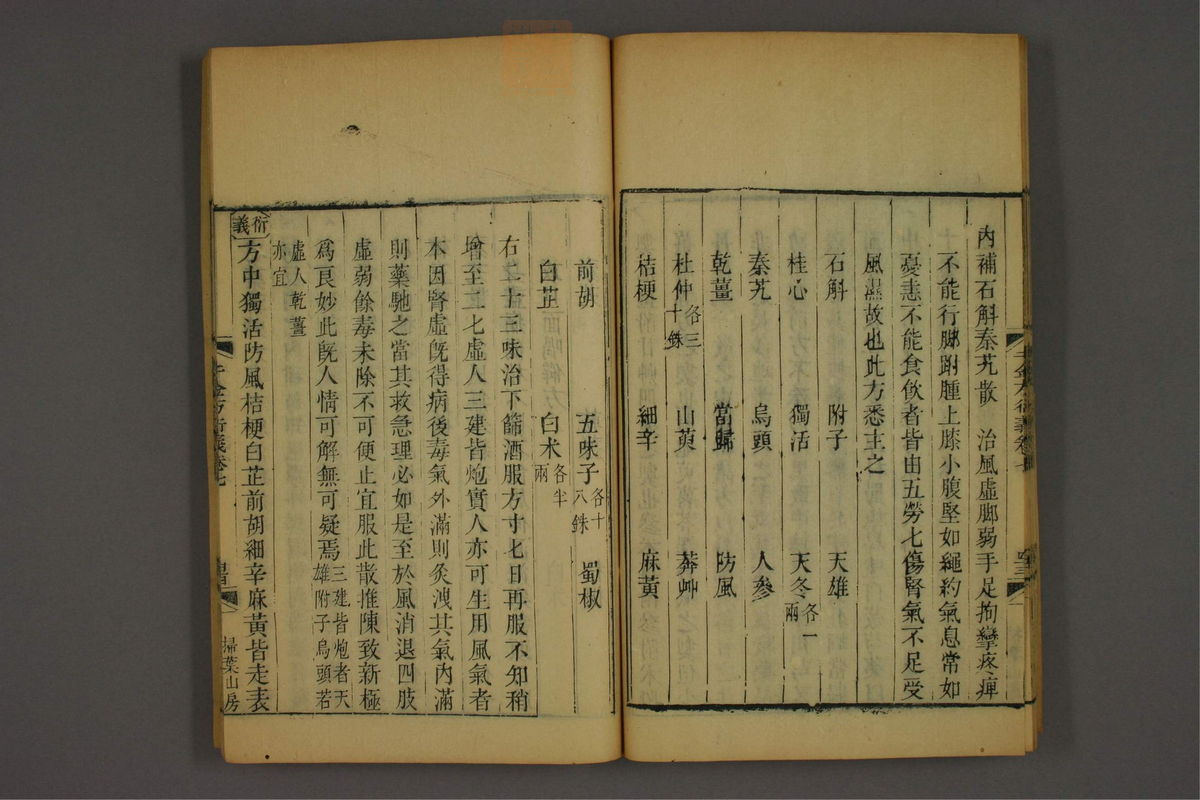 內補石斛秦艽散 治風虛脚弱手足拘攣疼痺
不能行脚跗腫上膝小腹堅如繩約氣息常如
憂恚不能食飲者皆由五勞七傷腎氣不足受
風濕故也此方悉主之
石斛 附子 天雄
桂心 獨活 天冬各一兩
秦艽 烏頭 人參
乾薑 當歸 防風
杜仲各三十銖 山萸 莽艸
桔梗 細辛 麻黃
前胡 五味子各十八銖 蜀椒
白芷 白术各半兩
右二十三味治下篩酒服方寸七日再服不知稍
增至二七虛人三建皆炮實人亦可生用風氣者
本因腎虛旣得病後毒氣外滿則灸洩其氣內滿
則藥馳之當其救急理必如是至於風消退四肢
虛弱餘毒未除不可便止宜服此散推陳致新極
爲良妙此旣人情可解無可疑焉三建皆炮者天雄附子烏頭若
虛人乾薑亦宜
衍義方中獨活防風桔梗白芷前胡細辛麻黃皆走表
千金方衍義卷七
掃葉山房